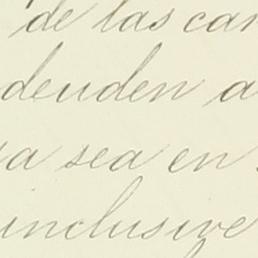 de las can
deuden a
sea en
inclusive